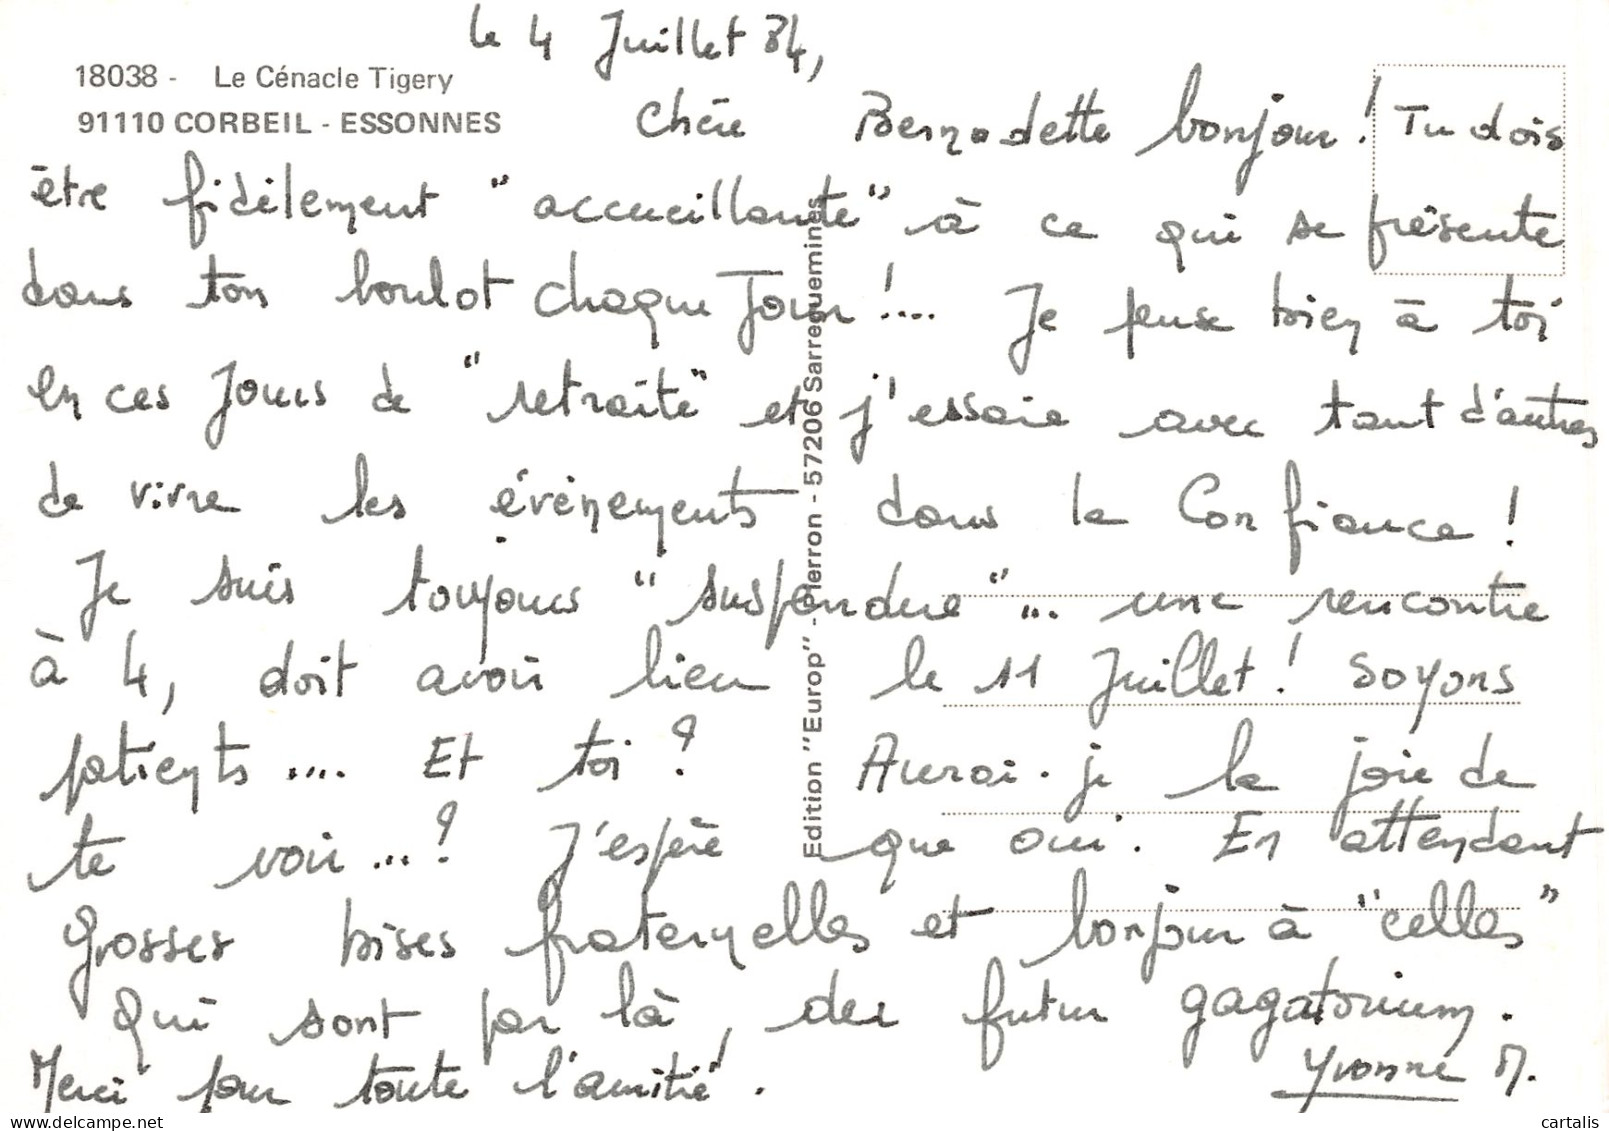 le 4 Juillet 84,
18038 - Le Cénacle Tigery
91110 CORBEIL - ESSONNES
Chère Bernadette bonjour ! Tu dois
être fidèlement "accueillante" à ce qui se présente
dans ton boulot chaque Jour !... Je pense bien à toi
en ces Jours de "retraite" et j'essaie avec tant d'autres
de vivre les événements dans la Confiance !
Je suis toujours "suspendue"... une rencontre
à 4, doit avoir lieu le 11 Juillet ! Soyons
patients .... Et toi ? Aurai-je la joie de
te voir...? J'espère que oui. En attendant
Grosses bises fraternelles et bonjour à "celles"
qui sont par là, des futur gagatorium.
Merci pour toute l'amitié ! Yvonne M.
Edition "Europ" - Pierron - 57206 Sarreguemines
cartalis